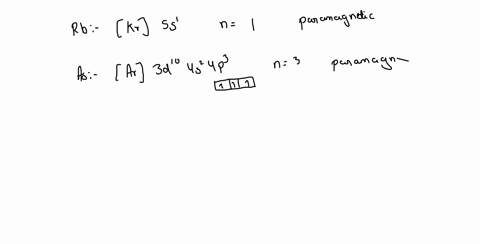 Rb:- [Kr] 5s¹ n = 1 paramagnetic
As:- [Ar] 3d¹⁰ 4s² 4p³ n = 3 paramagn
1 1 1